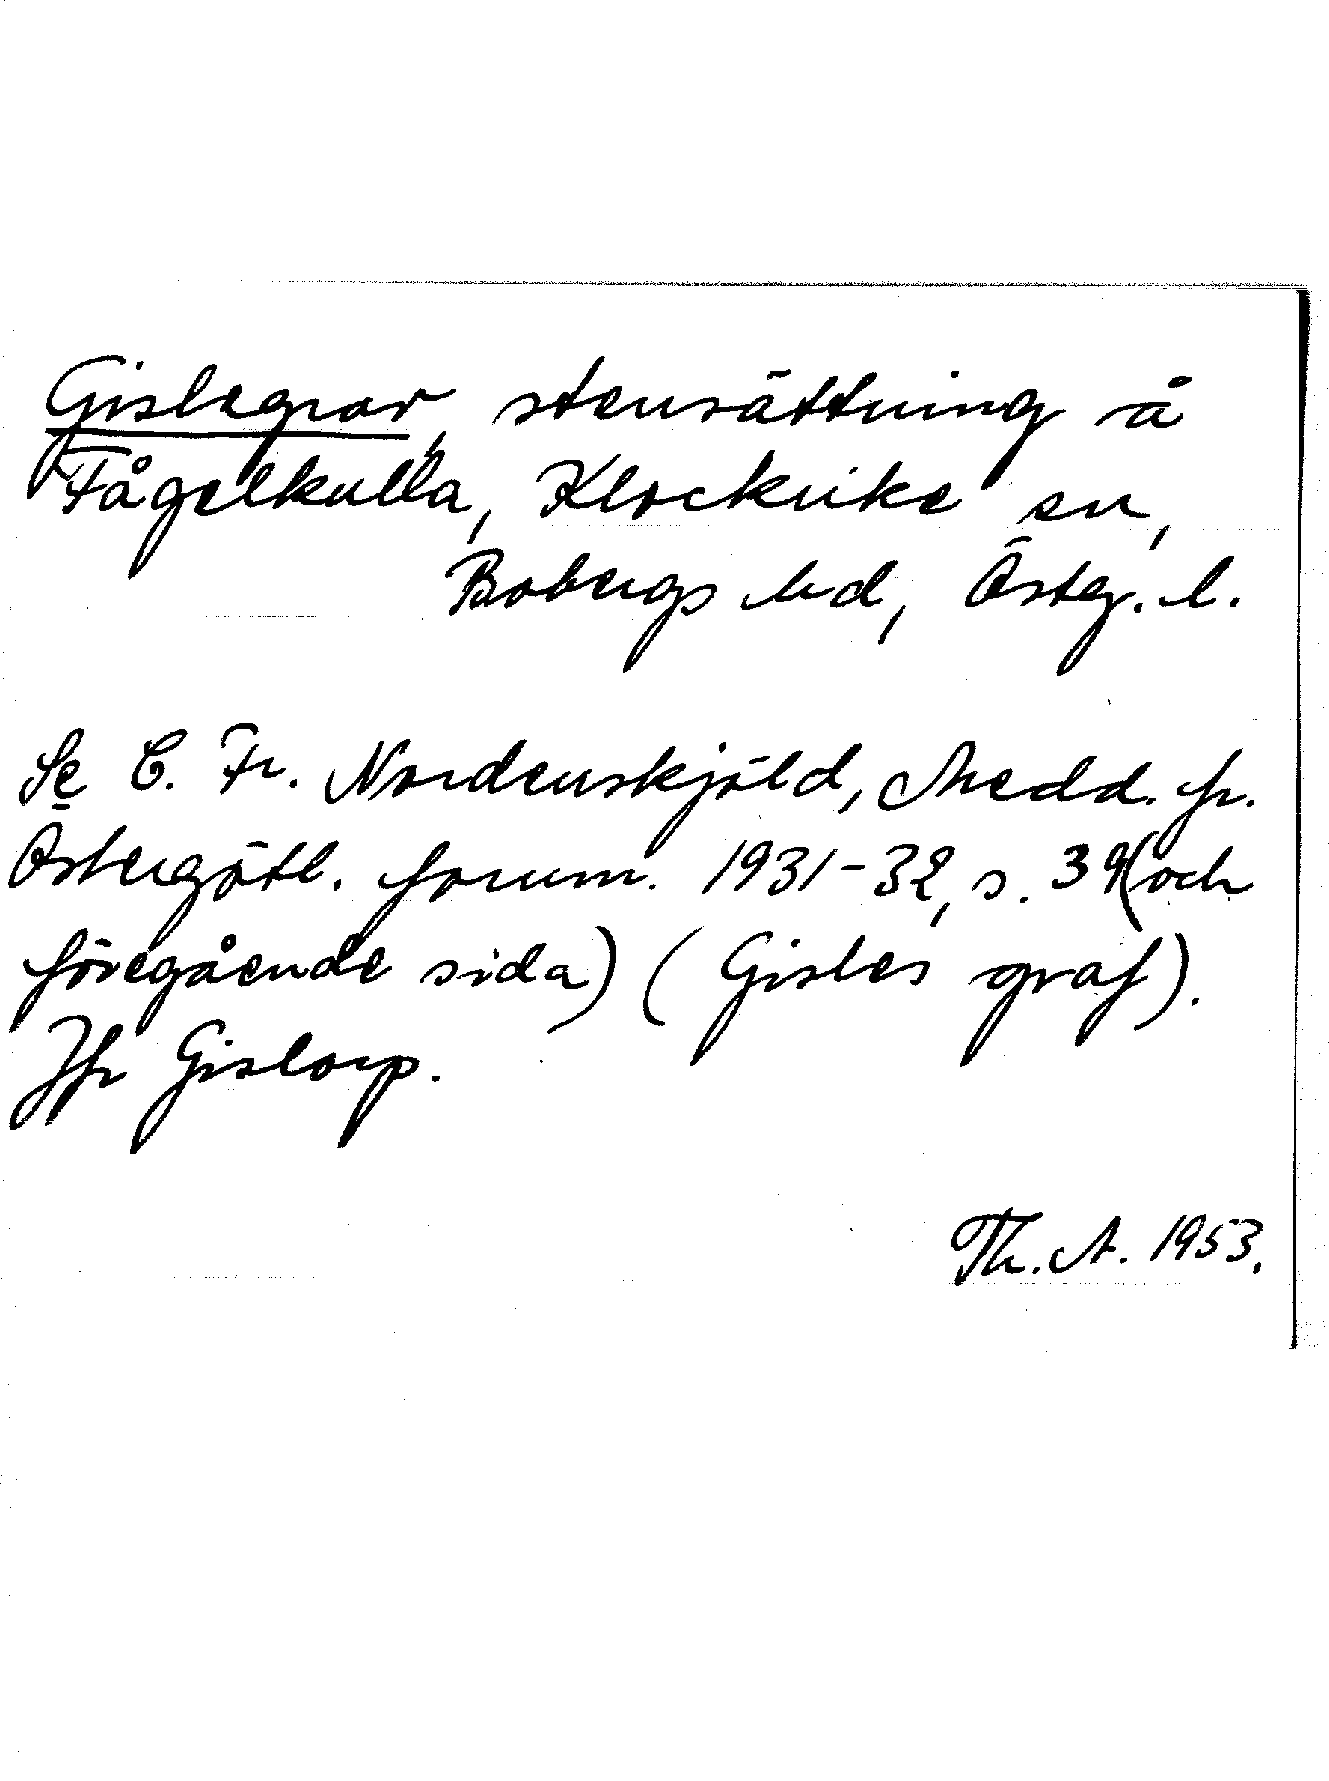 Gislegrav, stensättning å
Fågelkulla, Klockrike sn,
Bobergs hd, Östg. l.
Se C. Fr. Nordenskjöld, Medd. fr.
Östergötl. fornm. 1931-32, s. 39 (och
föregående sida) (Gisles graf).
Jfr Gislorp.
Th. A. 1953.